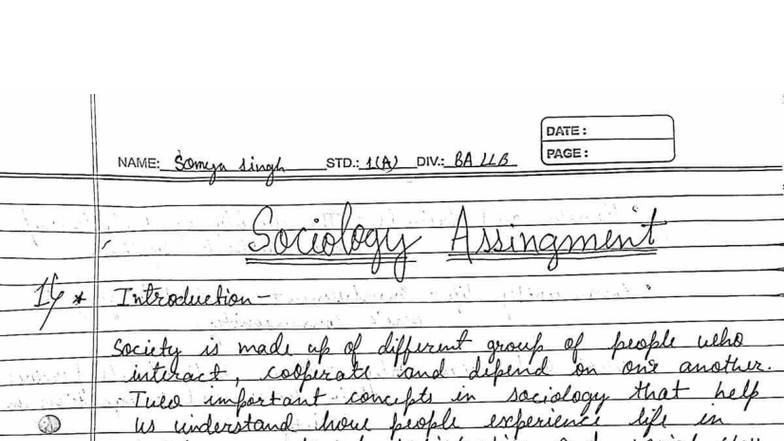 DATE :
PAGE :
NAME: Somya singh STD.: 1(A) DIV.: BA LLB
Sociology Assingment
* Introduction -
Society is made up of different group of people who
interact, cooperate and depend on one another.
Two important concepts in sociology that help
us understand how people experience life in